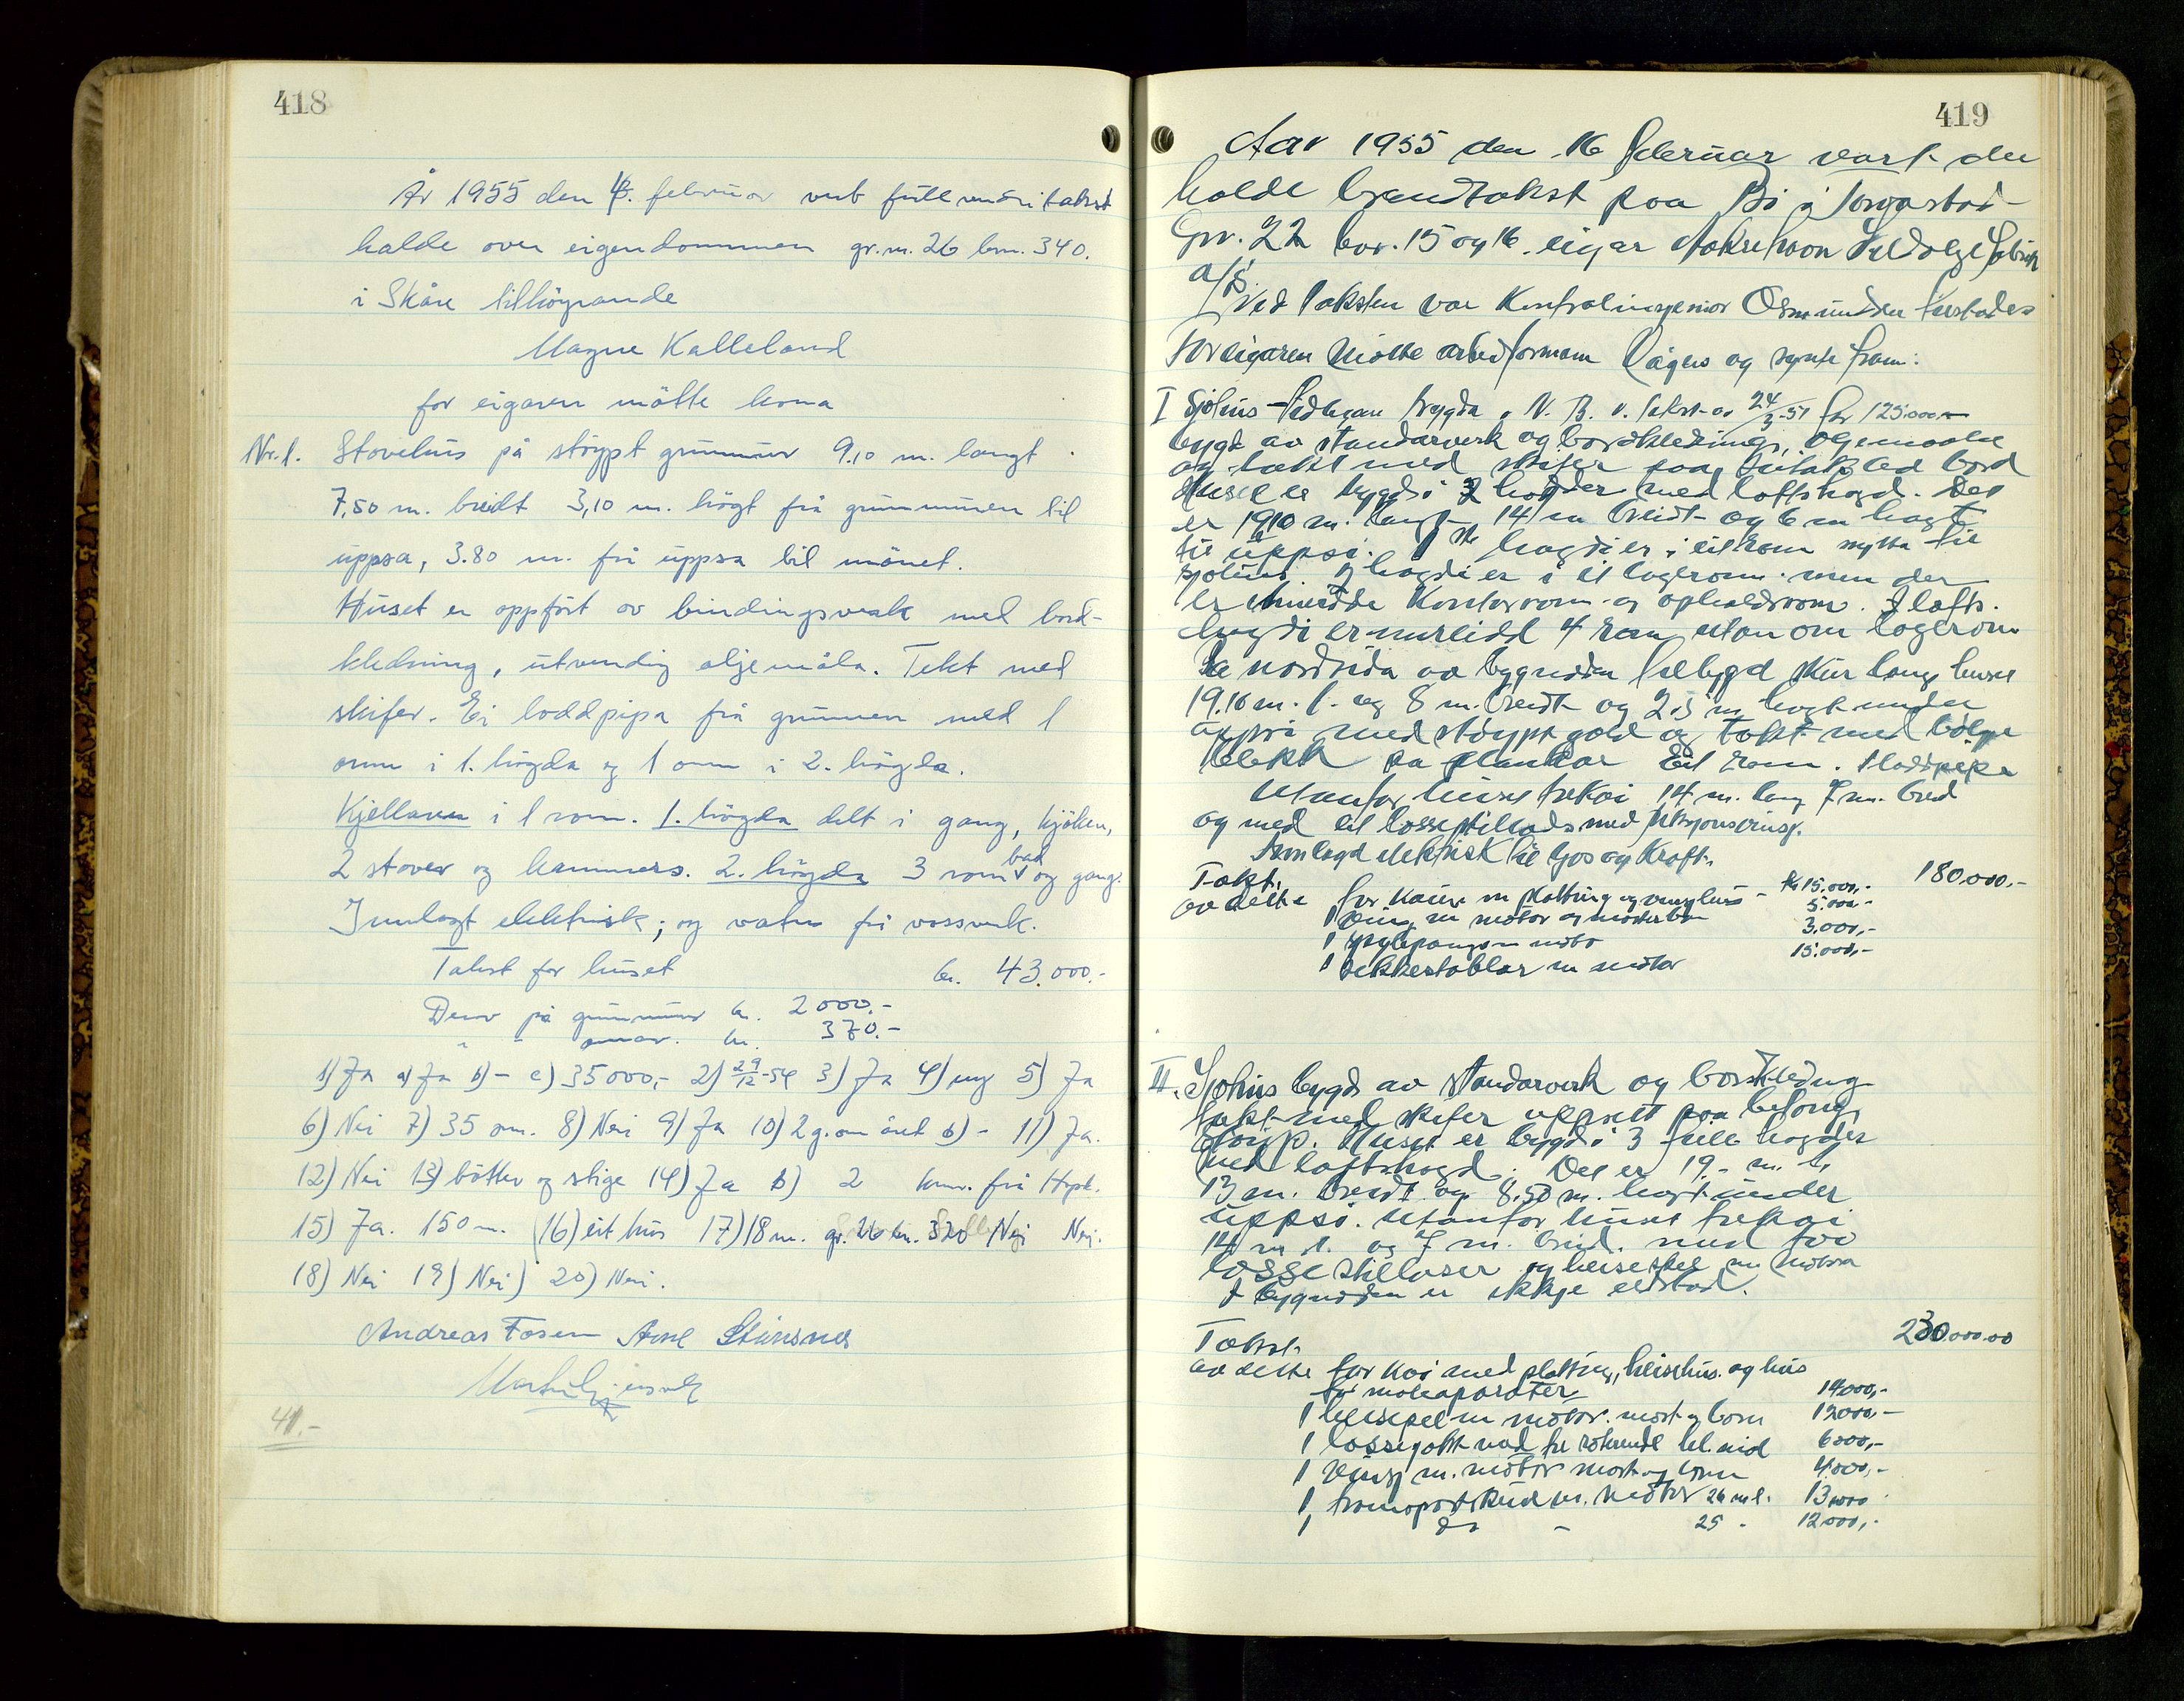 418
År 1955 den 4. februar vert fullverdi takst
halde over eigendommen gr.nr. 26 brn. 340.
i Skåre tilhøyrande
Magne Kalleland
for eigaren møtte kona
Nr. 1. Stovehus på støypt grunnmur 9.10 m. langt
7,50 m. breidt 3,10 m. høgt frå grunnmuren til
uppsa, 3.80 m. frå uppsa til mønet.
Huset er oppført av bindingsverk med bord-
kledning, utvendig oljemåla. Tekt med
skifer. Ei loddpipa frå grunnen med 1
omn i 1. høgda og 1 omn i 2. høgda.
Kjellaren i 1 rom. 1. høgda delt i gang, kjøken,
2 stover og kammers. 2. høgda 3 rom bad og gang.
Innlagt elektrisk; og vatn frå vassverk.
Takst for huset kr. 43.000.-
Derav på grunnmur kr. 2000.-
" - omnar. kr. 370.-
1) Ja a) Ja b) - c) 35000,- 2) 29/12-54 3) Ja 4) ny 5) Ja
6) Nei 7) 35 cm. 8) Nei 9) Ja 10) 2 g. om året b) - 11) Ja.
12) Nei 13) bøtter og stige 14) Ja b) 2 km. fra
15) Ja. 150 m. 16) eit hus 17) 18 m. gr. 26 bn. 320 Nei Nei.
18) Nei 19) Nei) 20) Nei.
Andreas Fosen Arne Stensnes
41.-
419
Aar 1955 den 16 februar vart der
halde brandtakst paa Bø i Torvastad
Gnr. 22 bnr. 15 og 16. eigar Sildolje fabrikk
a/s.
Ved taksten var Kontrolingeniør Osmundsen
For eigaren møtte arbeidformann og synte fram:
I Sjøhus bygda N. B. v. takst av 24/3-51 for 125.000,-
bygt av standarverk og bordkledning, oljemaala
og tekt med skifer paa bord
Huset er bygd i 2 høgder med loftshøgd. Det
er 19,10 m. langt 14 m breidt og 6 m høgt
til uppsi. 1ste høgdi er i eit rom nytta til
sjøhus. 2 høgdi er i eit lagerrom. men der
er innreidde Kontorrom og opholdsrom. I lofts-
høgdi er innreidd 4 rom utanom lagerrom
Paa nordsida av bygnaden tilbygd skur langs huset
19.10 m. l. og 8 m. breidt og 2.5 m høgt under
uppsi med støypt golv og tekt med bølge
blekk paa plankar Eit rom. 1 loddpipe
Utanfor huset trekai 14 m. lang 7 m. bred
og med eit lossestillads med
Innlagd elektrisk til ljos og Kraft.
Takst. 180.000.-
av dette for Kaien m platting og vinsjhus - kr 15.000,-
1 vinsj m motor 5.000.-
1 m motor 3.000,-
1 sekkestablar m motor 15.000,-
II. Sjøhus bygd av standarverk og bordkledning
tekt med skifer uppsett paa betong
støyp. Huset er bygd i 3 fulle høgder
med loftshøgd. Det er 19.- m. l.
13 m. breidt og 8,50 m. høgt under
uppsi. Utanfor huset trekai
14 m l. og 7 m. breid. med two
lossestillaser og heisespel m motor
I bygnaden er ikkje eldstad.
Takst. 230.000.00
av dette for kai med platting, heisehus. og hus
for maleaparater 14000,-
1 heisespel m motor. mast og bom 12000,-
1 6000,-
1 vinsj m. motor mast og bom 4.000,-
1 transportskrue m. motor 26 m l. 13.000
1 do - 25 - 12.000,-